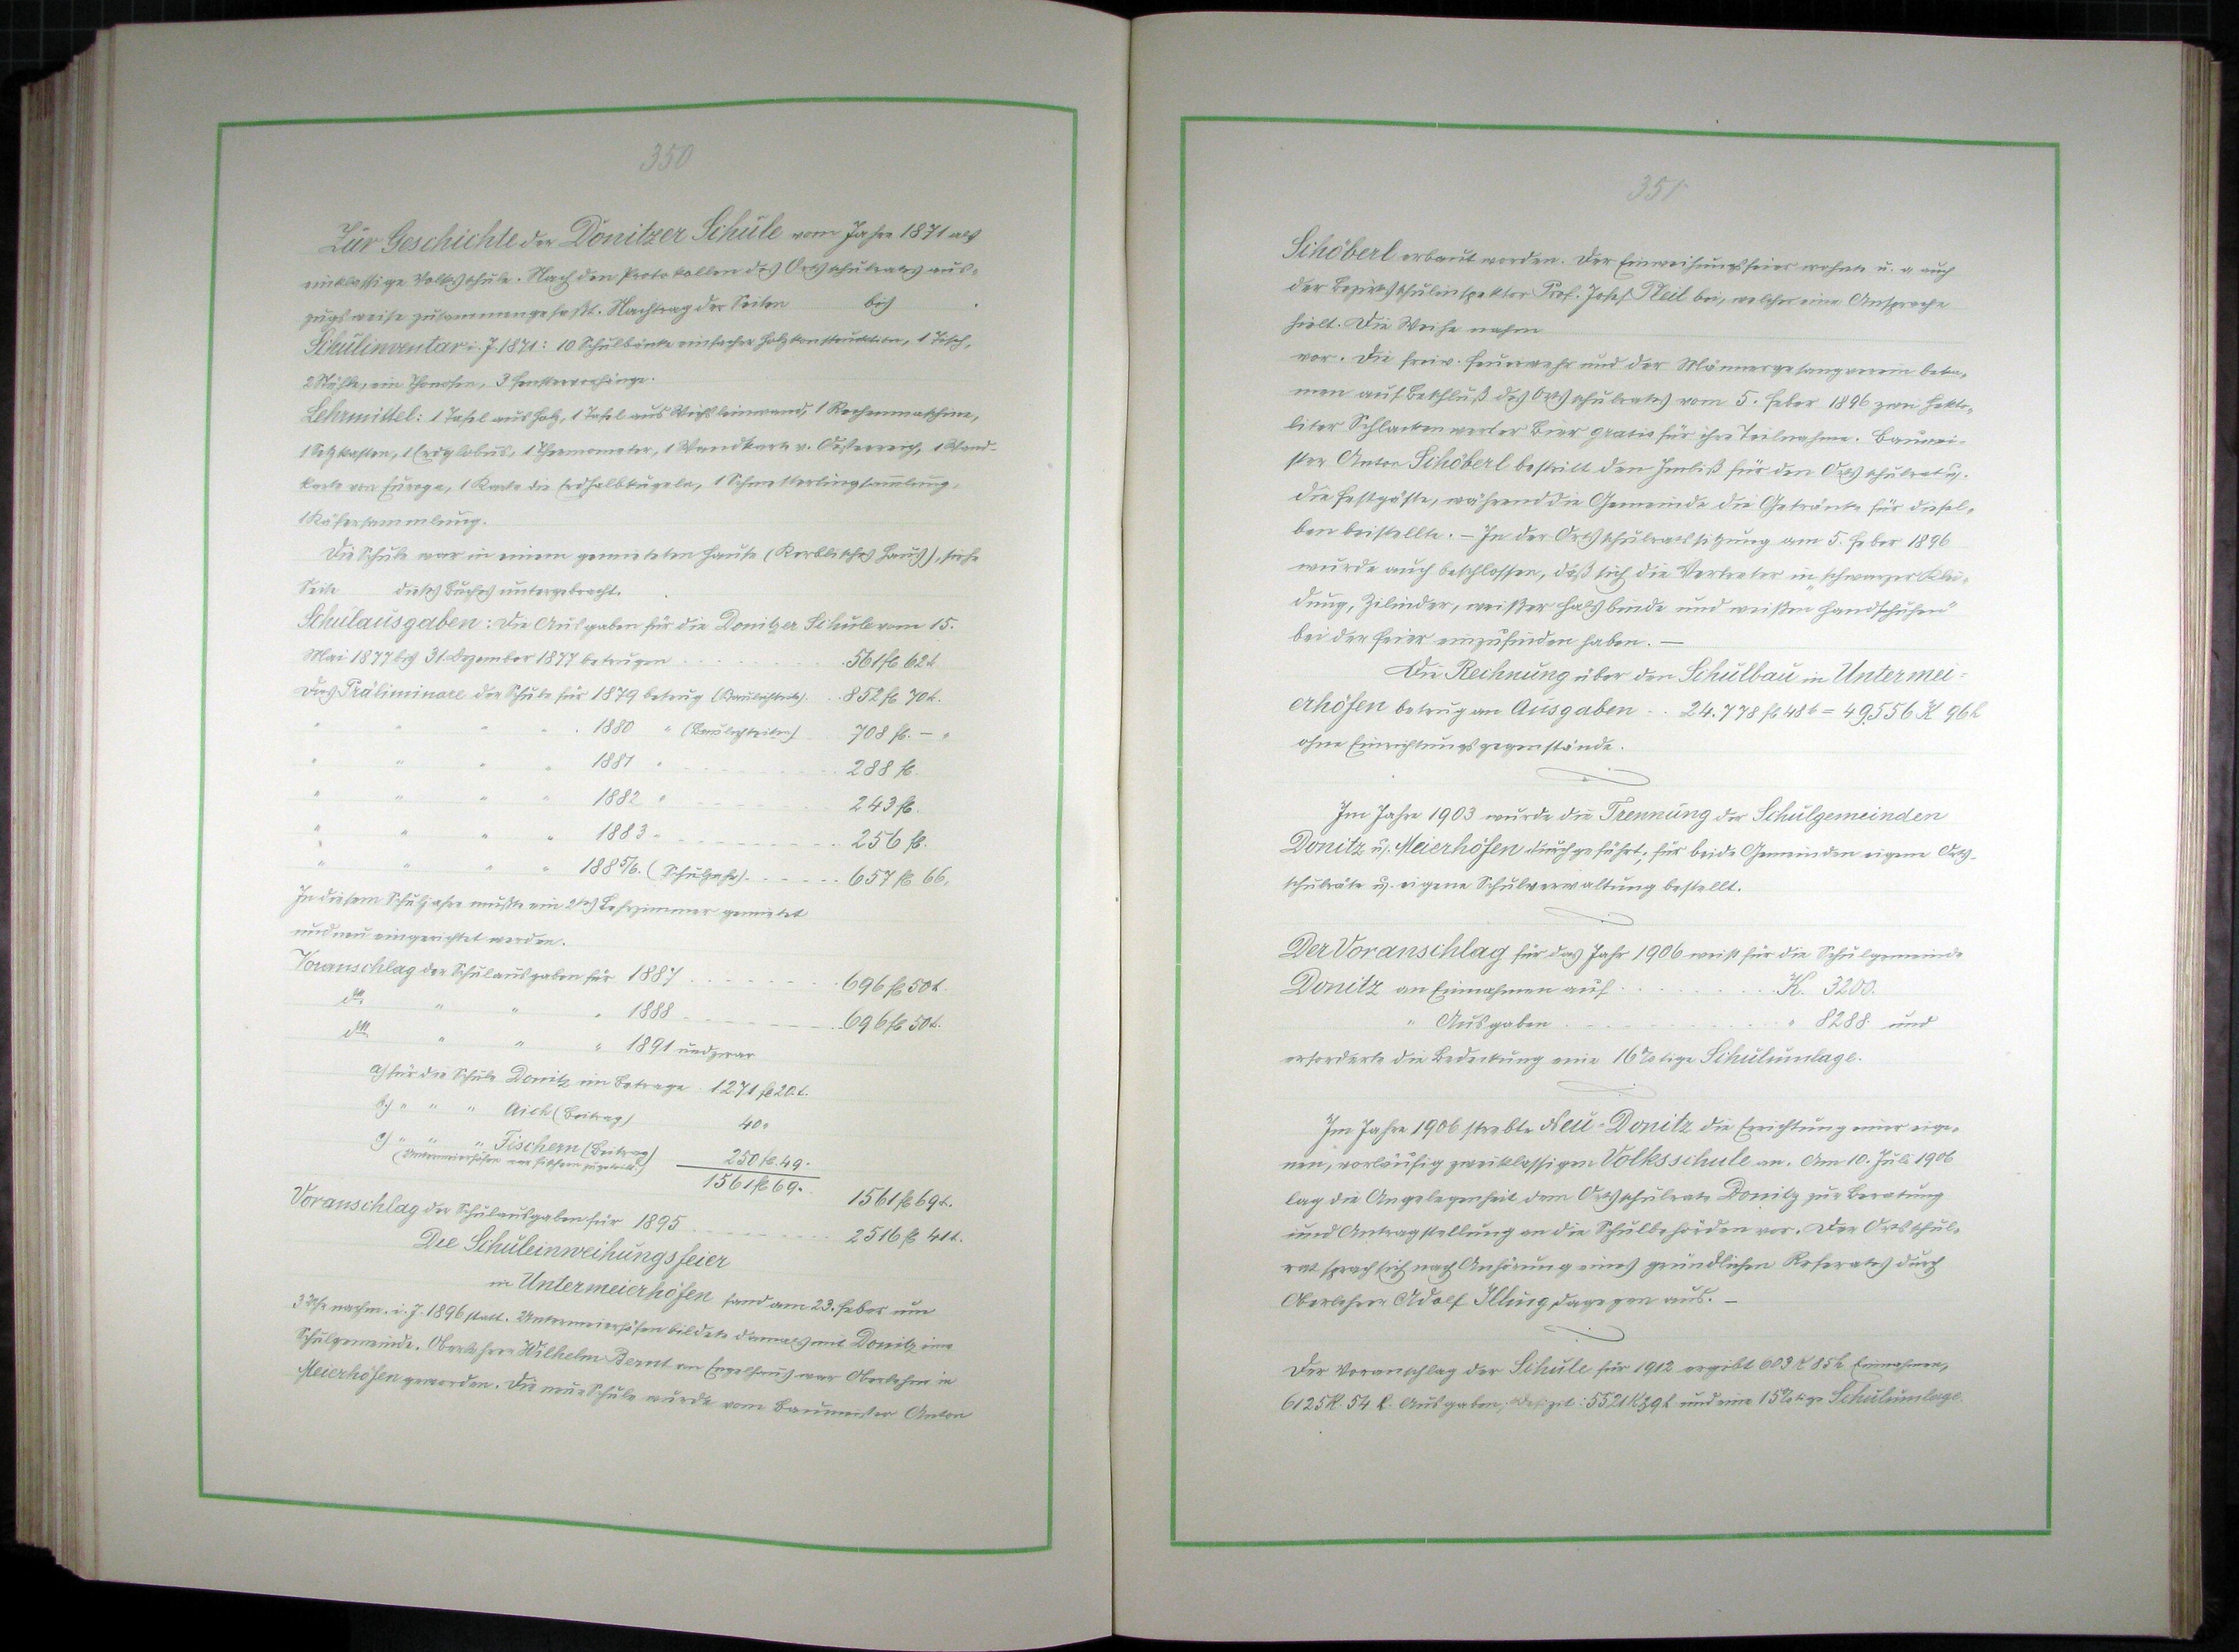 350
Zur Geschichte der Donitzer Schule vom Jahre 1871 als
einklassige Volksschule. Nach den Protokollen des Ortsschulrates aus-
zugsweise zusammengefaßt. Nachtrag der Seiten bis .
Schulinventar i. J. 1871: 10 Schulbänke einfacher Holzkonstruktion, 1 Tisch,
2 Stühle, ein Thonofen, 3 Fenstervorhänge.
Lehrmittel: 1 Tafel aus Holz, 1 Tafel aus Wichsleinwand, 1 Rechenmaschine,
1 Setzkasten, 1 Erdglobus, 1 Thermometer, 1 Wandkarte v. Oesterreich, 1 Wand-
karte von Europa, 1 Karte die Erdhalbkugeln, 1 Schmetterlingsammlung,
1 Käfersammlung.
Die Schule war in einem gemieteten Hause (Korblisches Haus), siehe
Seite dieses Buches untergebracht.
Schulausgaben: Die Ausgaben für die Donitzer Schule vom 15.
Mai 1877 bis 31. Dezember 1877 betrugen 561 fl 62 k
Das Präliminare der Schule für 1879 betrug 852 fl 70 k.
" " " " 1880 " 708 fl. — "
" " " " 1881 " 288 fl.
" " " " 1882 " 243 fl.
" " " " 1883 " 256 fl.
" " " " 1885/6. (Schuljahr) 657 fl 66.
In diesem Schuljahre mußte ein 2tes Lehrzimmer gemietet
und neu eingerichtet werden.
Voranschlag der Schulausgaben für 1887 696 fl 50 k.
dto " " " 1888 696 fl 50 k.
dto " " " 1891 und zwar
a) für die Schule Donitz im Betrage 1271 fl 20 k.
b) " " " Aich (Beitrag) 40 "
c) " " " Fischern (Beitrag) 250 fl. 49.
(Untermeierhöfen war Fischern zugeteilt.)
1561 fl 69. 1561 fl 69 k.
Voranschlag der Schulausgaben für 1895 2516 fl 41 k.
Die Schuleinweihungsfeier
in Untermeierhöfen fand am 23. Feber um
3 Uhr nachm. i. J. 1896 statt. Untermeierhöfen bildete damals mit Donitz eine
Schulgemeinde. Oberlehrer Wilhelm Bernt von Engelhaus war Oberlehrer in
Meierhöfen geworden. Die neue Schule wurde vom Baumeister Anton
351
Schöberl erbaut worden. Der Einweihungsfeier wohnte u. a auch
der Bezirksschulinspektor Prof. Josef Neil bei, welcher eine Ansprache
hielt. Die Weihe nahm
vor. Die freiw. Feuerwehr und der Männergesangverein beka-
men auf Beschluß des Ortsschulrates vom 5. Feber 1896 zwei Hekto-
liter Schlackenwerter Bier gratis für ihre Teilnahme. Baumei-
ster Anton Schöberl bestritt den Imbiß für den Ortsschulrat u.
die Festgäste, während die Gemeinde die Getränke für diesel-
ben beistellte. — In der Ortsschulratssitzung am 5. Feber 1896
wurde auch beschlossen, daß sich die Vertreter in „schwarzer Klei-
dung, Zilinder, weißer Halsbinde und weißen Handschuhen"
bei der Feier einzufinden haben. —
Die Rechnung über den Schulbau in Untermei-
erhöfen betrug an Ausgaben . . 24.778 fl 48 k = 49.556 K 96 h
ohne Einrichtungsgegenstände.
Im Jahre 1903 wurde die Trennung der Schulgemeinden
Donitz u. Meierhöfen durchgeführt, für beide Gemeinden eigene Orts-
schulräte u. eigene Schulverwaltung bestellt.
Der Voranschlag für das Jahr 1906 weist für die Schulgemeinde
Donitz an Einnahmen auf K. 3200.
" Ausgaben " 8288. und
erforderte die Bedeckung eine 16%tige Schulumlage.
Im Jahre 1906 strebte Neu-Donitz die Errichtung einer eige-
nen, vorläufig zweiklassigen Volksschule an. Am 10. Juli 1906
lag die Angelegenheit dem Ortsschulrate Donitz zur Beratung
und Antragstellung an die Schulbehörden vor. Der Ortsschul-
rat sprach sich nach Anhörung eines gründlichen Referates durch
Oberlehrer Adolf Illing dagegen aus. —
Der Voranschlag der Schule für 1912 ergibt 603 K 85 h Einnahmen,
6125 K 54 h Ausgaben, Defizit: 5521 K 39 h und eine 15%tige Schulumlage.